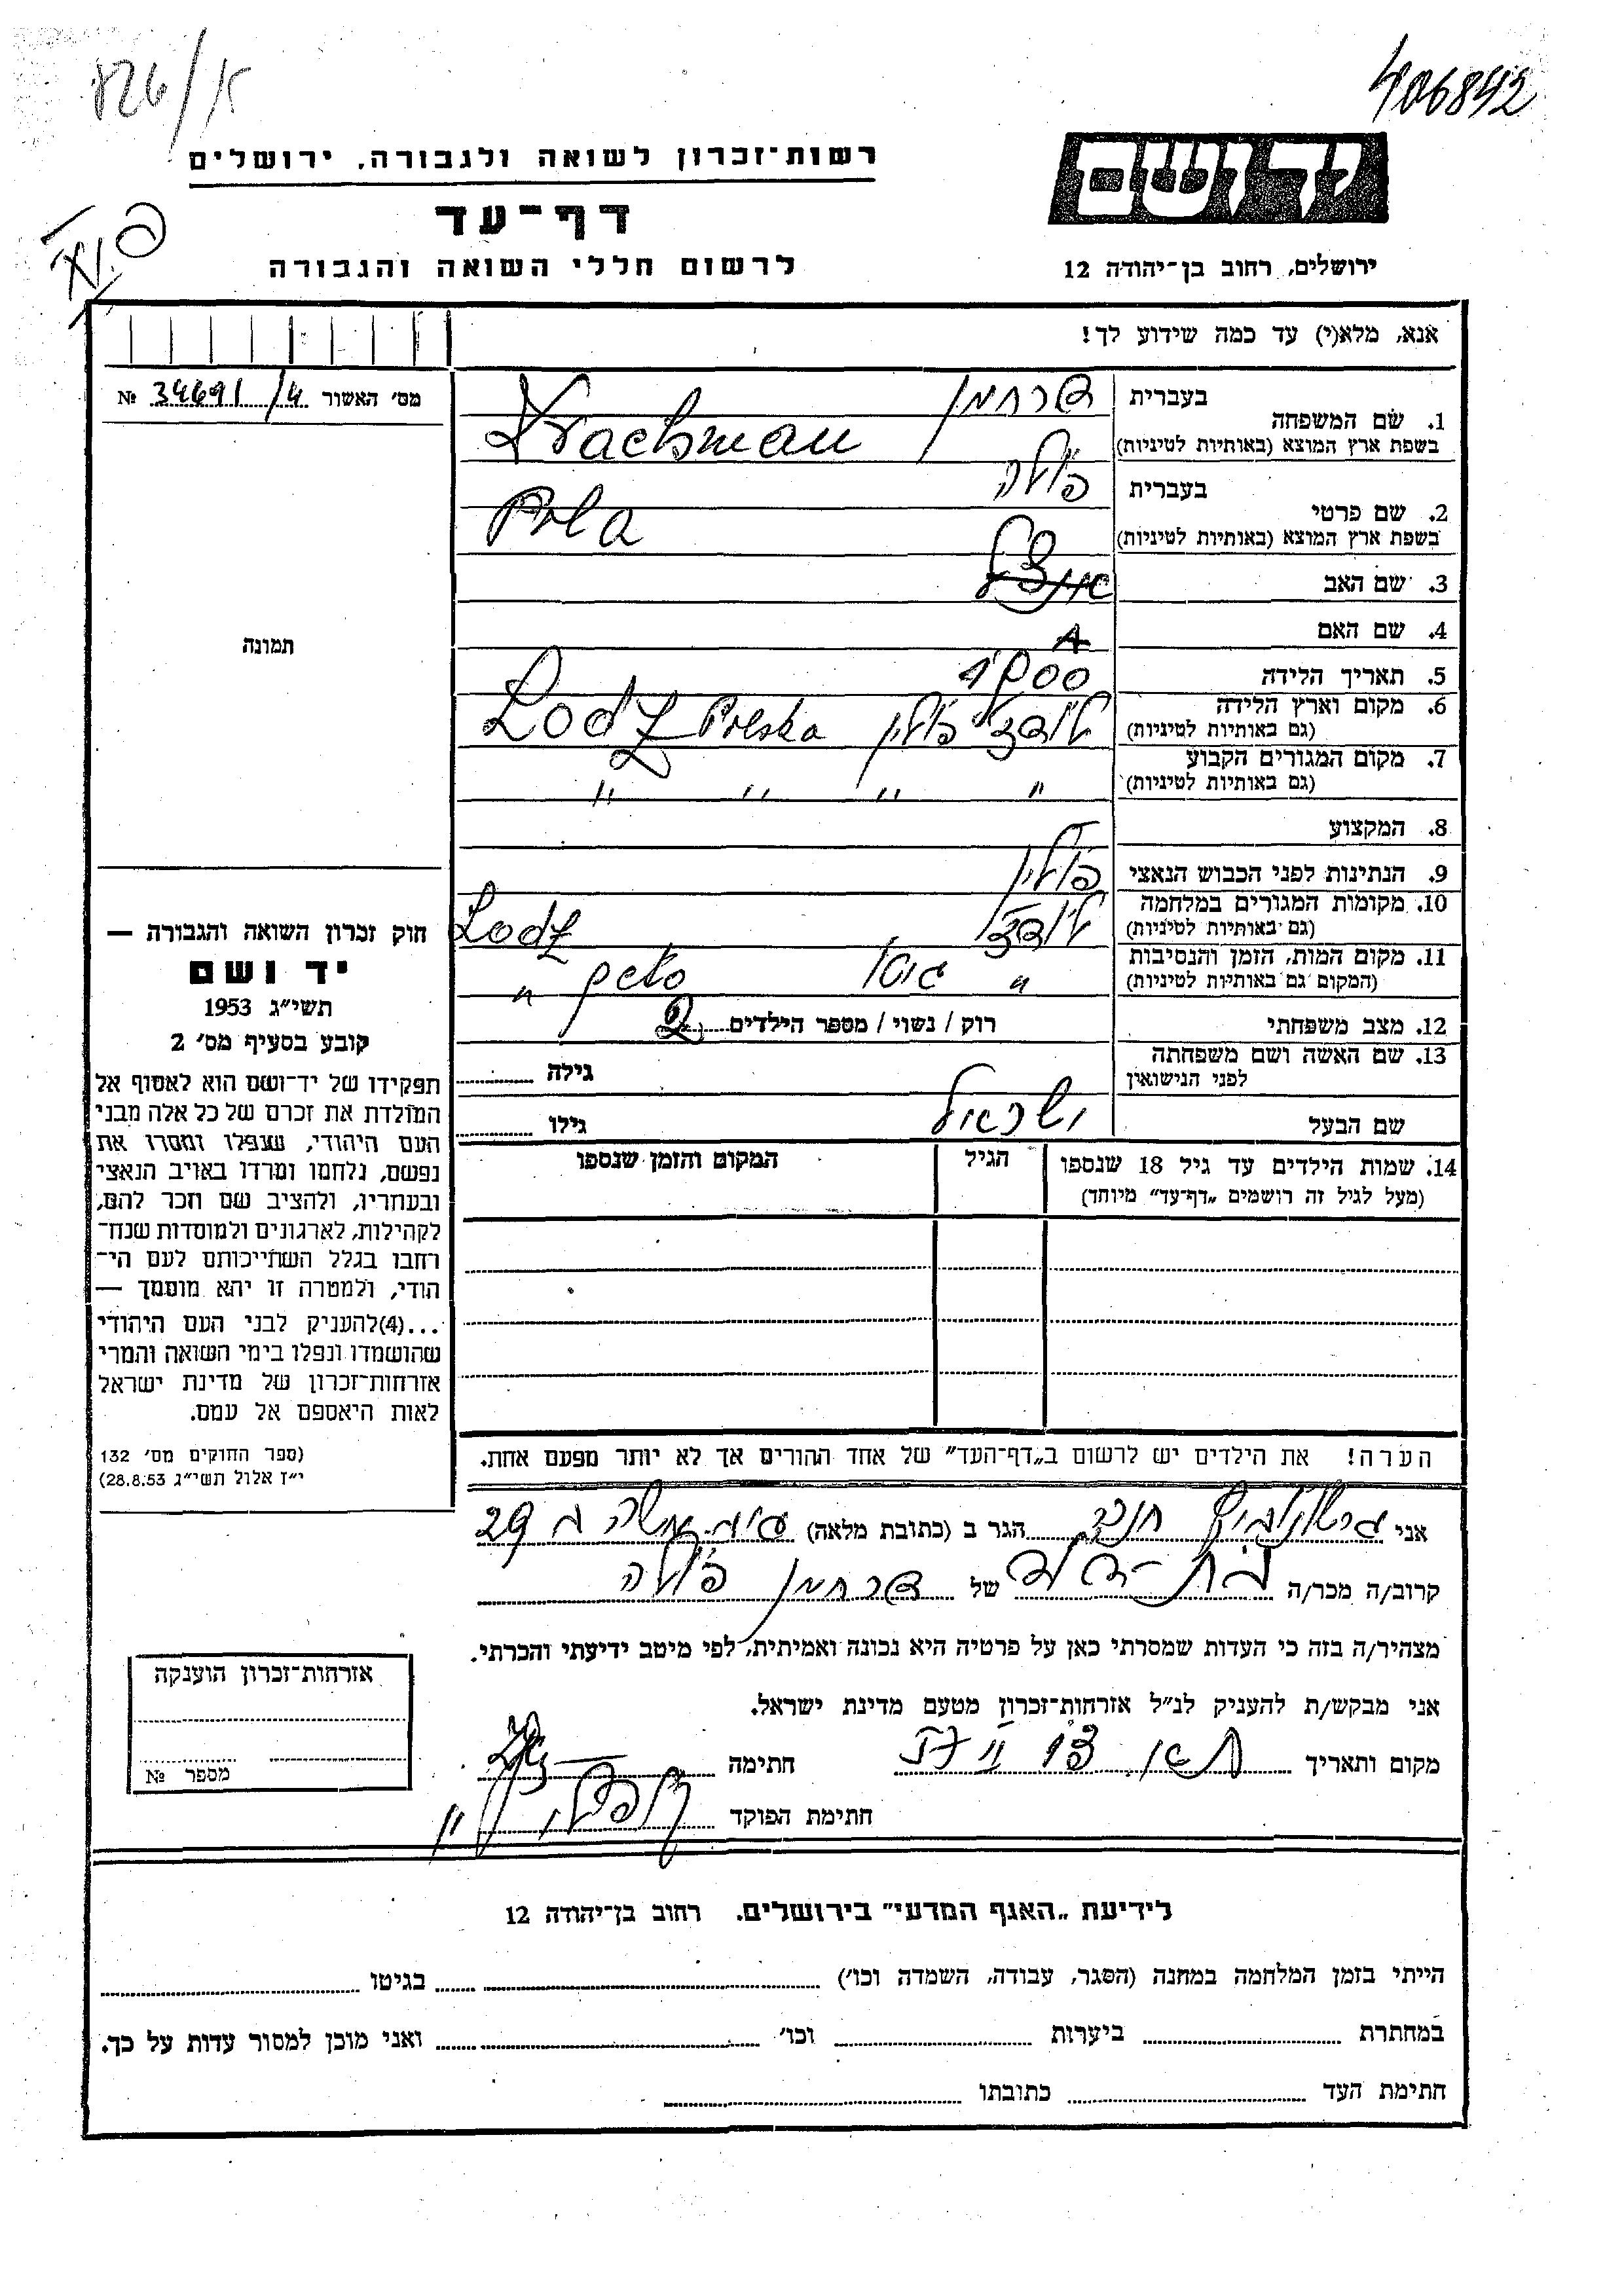 406842
826/א
יד ושם
רשות-זכרון לשואה ולגבורה, ירושלים
דף-עד
ירושלים, רחוב בן-יהודה 12
לרשום חללי השואה והגבורה
אנא, מלא(י) עד כמה שידוע לך!
מס׳ האשור 34691/4 №
1. שם המשפחה
בעברית
בשפת ארץ המוצא (באותיות לטיניות)
Krachman
2. שם פרטי
בעברית פולה
בשפת ארץ המוצא (באותיות לטיניות)
Pola
3. שם האב
4. שם האם
5. תאריך הלידה 1900
6. מקום וארץ הלידה
(גם באותיות לטיניות)
לודז׳ פולין Lodz Polska
7. מקום המגורים הקבוע
(גם באותיות לטיניות)
" " " "
8. המקצוע —
9. הנתינות לפני הכבוש הנאצי פולין
10. מקומות המגורים במלחמה
(גם באותיות לטיניות)
לודז׳ Lodz
11. מקום המות, הזמן והנסיבות
(המקום גם באותיות לטיניות)
" גטו "
12. מצב משפחתי רוק / נשוי / מספר הילדים 2
13. שם האשה ושם משפחתה
לפני הנישואין
גילה
שם הבעל ישראל גילו
14. שמות הילדים עד גיל 18 שנספו
(מעל לגיל זה רושמים „דף-עד" מיוחד)
הגיל
המקום והזמן שנספו
תמונה
חוק זכרון השואה והגבורה —
יד ושם
תשי״ג 1953
קובע בסעיף מס׳ 2
תפקידו של יד-ושם הוא לאסוף אל
המולדת את זכרם של כל אלה מבני
העם היהודי, שנפלו ומסרו את
נפשם, נלחמו ומרדו באויב הנאצי
ובעוזריו, ולהציב שם וזכר להם,
לקהילות, לארגונים ולמוסדות שנח-
רחבו בגלל השתייכותם לעם הי-
הודי, ולמטרה זו יהא מוסמך —
...(4)להעניק לבני העם היהודי
שהושמדו ונפלו בימי השואה והמרי
אזרחות-זכרון של מדינת ישראל
לאות היאספם אל עמם.
(ספר החוקים מס׳ 132
י״ז אלול תשי״ג 28.8.53)
הערה! את הילדים יש לרשום ב„דף-העד" של אחד ההורים אך לא יותר מפעם אחת.
אני חנה הגר ב (כתובת מלאה) 29
קרוב/ה מכר/ה בת-דוד של פולה
מצהיר/ה בזה כי העדות שמסרתי כאן על פרטיה היא נכונה ואמיתית, לפי מיטב ידיעתי והכרתי.
אני מבקש/ת להעניק לנ״ל אזרחות-זכרון מטעם מדינת ישראל.
מקום ותאריך חתימה
חתימת הפוקד
אזרחות-זכרון הוענקה
מספר №
לידיעת „האגף המדעי" בירושלים. רחוב בן-יהודה 12
הייתי בזמן המלחמה במחנה (הסגר, עבודה, השמדה וכו׳) בגיטו
במחתרת ביערות וכו׳ ואני מוכן למסור עדות על כך.
חתימת העד כתובתו